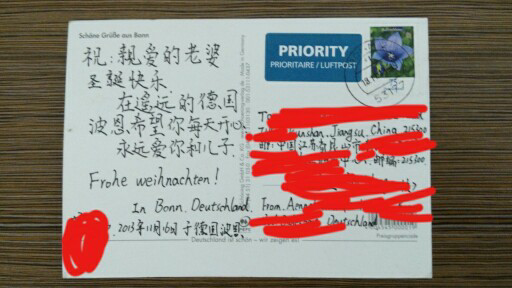 Schöne Grüße aus Bonn
祝:亲爱的老婆
圣诞快乐
在遥远的德国
波恩,希望你每天开心
永远爱你和儿子.
Frohe weihnachten!
In Bonn, Deutschland
2013年11月16日于德国波恩
Deutschland ist schön – wir zeigen es
PRIORITY
PRIORITAIRE / LUFTPOST
To
Jiangsu, China 215300
中国江苏省昆山市
中心, 邮编:215300
From
Deutschland